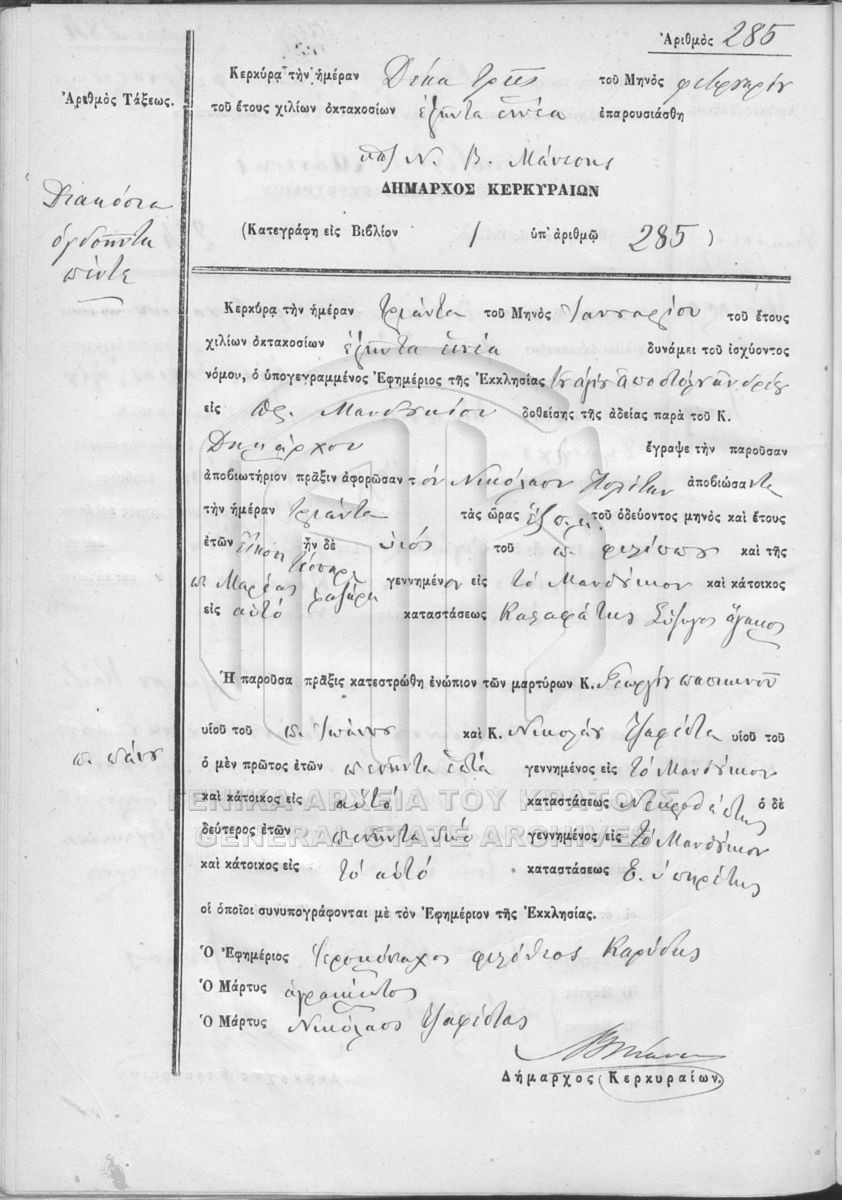 Ἀριθμὸς 285
Κερκύρᾳ τὴν ἡμέραν Δέκα τρεῖς τοῦ Μηνὸς φεβρουαρίου
Ἀριθμὸς Τάξεως.
τοῦ ἔτους χιλίων ὀκτακοσίων ἑξήντα ἐννέα ἐπαρουσιάσθη
Ν. Β. Μάνεσης
ΔΗΜΑΡΧΟΣ ΚΕΡΚΥΡΑΙΩΝ
Διακόσια
ὀγδοῆντα
πέντε
(Κατεγράφη εἰς Βιβλίον 1 ὑπ' ἀριθμῷ 285)
Κερκύρᾳ τὴν ἡμέραν τριάντα τοῦ Μηνὸς Ἰανουαρίου τοῦ ἔτους
χιλίων ὀκτακοσίων ἑξήντα ἐννέα δυνάμει τοῦ ἰσχύοντος
νόμου, ὁ ὑπογεγραμμένος Ἐφημέριος τῆς Ἐκκλησίας τοῦ ἁγίου ἀποστόλου ἀνδρέου
εἰς Μανδουκίου δοθείσης τῆς ἀδείας παρὰ τοῦ Κ.
Δημάρχου ἔγραψε τὴν παροῦσαν
ἀποβιωτήριον πρᾶξιν ἀφορῶσαν τὸν Νικόλαον Πολίτην ἀποβιώσαντα
τὴν ἡμέραν τριάντα τὰς ὥρας ἕξ τοῦ ὁδεύοντος μηνὸς καὶ ἔτους
ἐτῶν εἴκοσι τέσσαρα ἦν δὲ υἱός τοῦ π. φιλίππου καὶ τῆς
π. Μαρίας γεννημένον εἰς τὸ Μανδύκιον καὶ κάτοικος
εἰς αὐτό καταστάσεως Καλαφάτης Σύζυγος ἄγαμος
Ἡ παροῦσα πρᾶξις κατεστρώθη ἐνώπιον τῶν μαρτύρων Κ. Γεωργίου
υἱοῦ τοῦ π. Ἰωάννου καὶ Κ. Νικολάου Τζαφέστα υἱοῦ τοῦ
π. πάνου
ὁ μὲν πρῶτος ἐτῶν πενῆντα ἑπτά γεννημένος εἰς τὸ Μανδύκιον
καὶ κάτοικος εἰς αὐτό καταστάσεως Νεκροθάπτης ὁ δὲ
δεύτερος ἐτῶν πενῆντα δύο γεννημένος εἰς τὸ Μανδύκιον
καὶ κάτοικος εἰς τὸ αὐτό καταστάσεως Ἐ. ὑπηρέτης
οἱ ὁποῖοι συνυπογράφονται μὲ τὸν Ἐφημέριον τῆς Ἐκκλησίας.
Ὁ Ἐφημέριος Ἱερομόναχος φιλόθεος Καρύδης
Ὁ Μάρτυς ἀγράμματος
Ὁ Μάρτυς Νικόλαος Τζαφέστας
Δήμαρχος Κερκυραίων.
ΓΕΝΙΚΑ ΑΡΧΕΙΑ ΤΟΥ ΚΡΑΤΟΥΣ
GENERAL STATE ARCHIVES